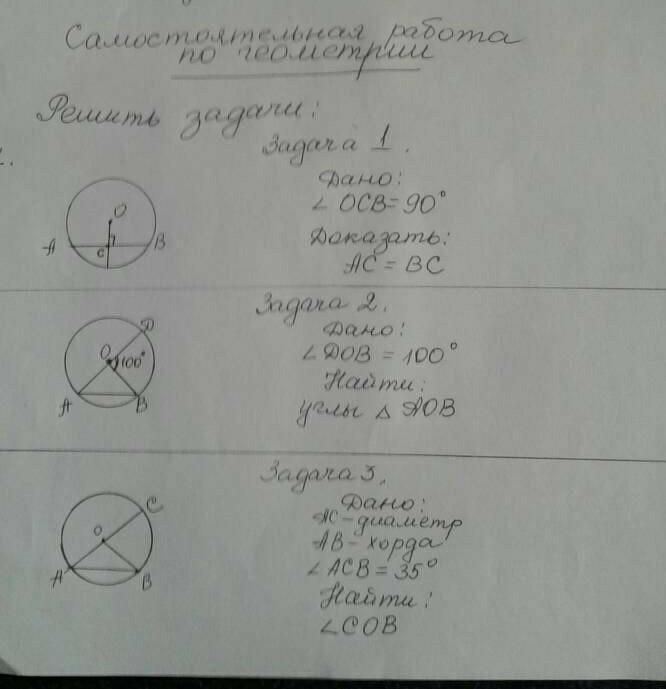 Самостоятельная работа
по геометрии
Решить задачи:
Задача 1.
Дано:
∠ OCB = 90°
Доказать:
AC = BC
O
A
C
B
Задача 2.
Дано:
∠DOB = 100°
Найти:
углы △ AOB
D
O
100°
A
B
Задача 3.
Дано:
AC - диаметр
AB - хорда
∠ACB = 35°
Найти:
∠COB
C
O
A
B